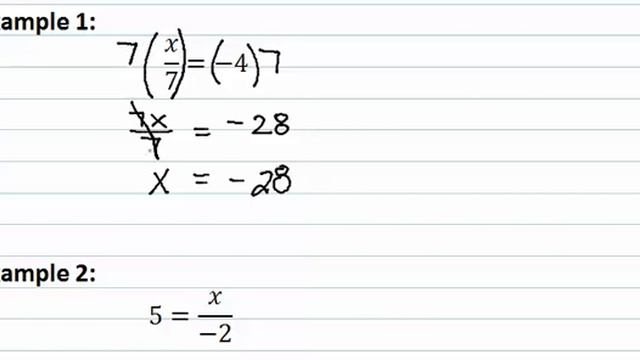 ample 1:
7(x/7) = (-4)7
7x/7 = -28
x = -28
ample 2:
5 = x/-2